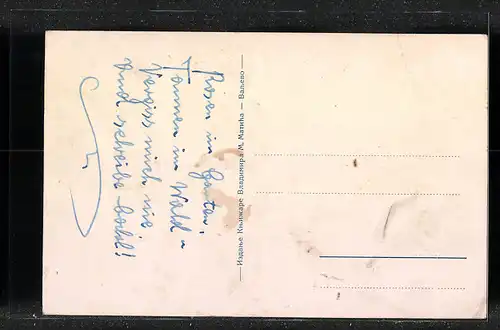 Rosen im Garten,
Tannen im Wald -
Vergiss mich nie
und schreibe bald!
— Издање Књижаре Владимира М. Матића — Ваљево —